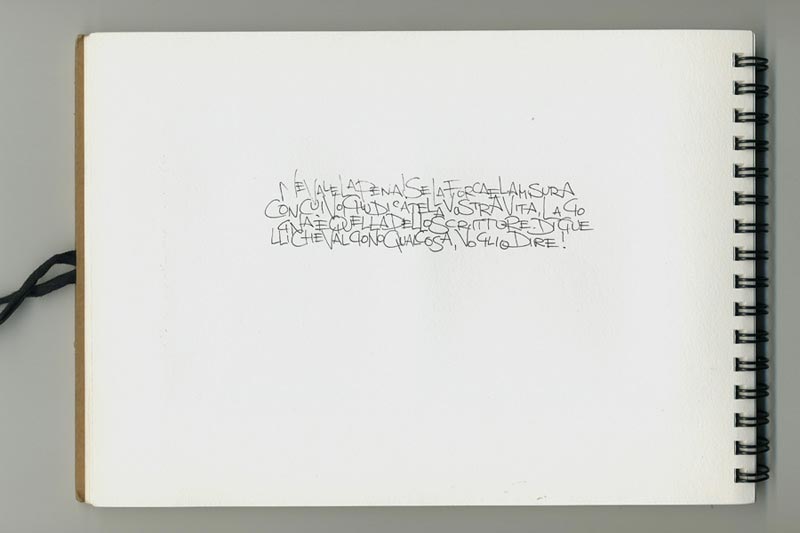 NE VALE LA PENA! SE LA FORCA E LA MISURA
CON CUI VOI GIUDICATE LA VOSTRA VITA, LA GO
GNA È QUELLA DELLO SCRITTORE. DI QUE
LLI CHE VALGONO QUALCOSA, VOGLIO DIRE!